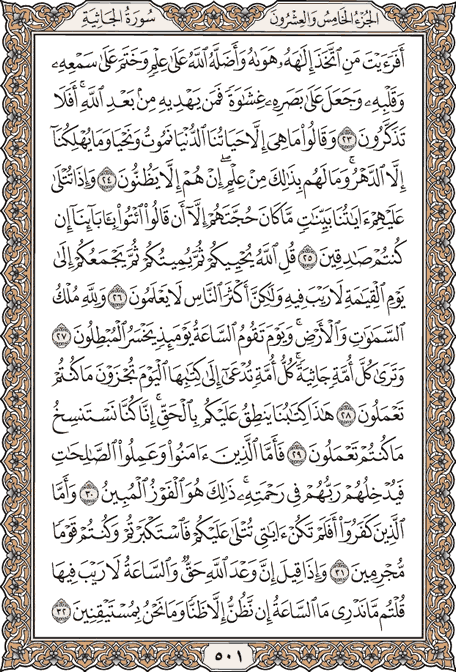 الجزء الخامس والعشرون
سورة الجاثية
أَفَرَءَيْتَ مَنِ ٱتَّخَذَ إِلَٰهَهُۥ هَوَىٰهُ وَأَضَلَّهُ ٱللَّهُ عَلَىٰ عِلْمٍ وَخَتَمَ عَلَىٰ سَمْعِهِۦ
وَقَلْبِهِۦ وَجَعَلَ عَلَىٰ بَصَرِهِۦ غِشَٰوَةً فَمَن يَهْدِيهِ مِنۢ بَعْدِ ٱللَّهِ ۚ أَفَلَا
تَذَكَّرُونَ ٢٣ وَقَالُوا۟ مَا هِىَ إِلَّا حَيَاتُنَا ٱلدُّنْيَا نَمُوتُ وَنَحْيَا وَمَا يُهْلِكُنَآ
إِلَّا ٱلدَّهْرُ ۚ وَمَا لَهُم بِذَٰلِكَ مِنْ عِلْمٍ ۖ إِنْ هُمْ إِلَّا يَظُنُّونَ ٢٤ وَإِذَا تُتْلَىٰ
عَلَيْهِمْ ءَايَٰتُنَا بَيِّنَٰتٍ مَّا كَانَ حُجَّتَهُمْ إِلَّآ أَن قَالُوا۟ ٱئْتُوا۟ بِـَٔابَآئِنَآ إِن
كُنتُمْ صَٰدِقِينَ ٢٥ قُلِ ٱللَّهُ يُحْيِيكُمْ ثُمَّ يُمِيتُكُمْ ثُمَّ يَجْمَعُكُمْ إِلَىٰ
يَوْمِ ٱلْقِيَٰمَةِ لَا رَيْبَ فِيهِ وَلَٰكِنَّ أَكْثَرَ ٱلنَّاسِ لَا يَعْلَمُونَ ٢٦ وَلِلَّهِ مُلْكُ
ٱلسَّمَٰوَٰتِ وَٱلْأَرْضِ ۚ وَيَوْمَ تَقُومُ ٱلسَّاعَةُ يَوْمَئِذٍ يَخْسَرُ ٱلْمُبْطِلُونَ ٢٧
وَتَرَىٰ كُلَّ أُمَّةٍ جَاثِيَةً ۚ كُلُّ أُمَّةٍ تُدْعَىٰٓ إِلَىٰ كِتَٰبِهَا ٱلْيَوْمَ تُجْزَوْنَ مَا كُنتُمْ
تَعْمَلُونَ ٢٨ هَٰذَا كِتَٰبُنَا يَنطِقُ عَلَيْكُم بِٱلْحَقِّ ۚ إِنَّا كُنَّا نَسْتَنسِخُ
مَا كُنتُمْ تَعْمَلُونَ ٢٩ فَأَمَّا ٱلَّذِينَ ءَامَنُوا۟ وَعَمِلُوا۟ ٱلصَّٰلِحَٰتِ
فَيُدْخِلُهُمْ رَبُّهُمْ فِى رَحْمَتِهِۦ ۚ ذَٰلِكَ هُوَ ٱلْفَوْزُ ٱلْمُبِينُ ٣٠ وَأَمَّا
ٱلَّذِينَ كَفَرُوٓا۟ أَفَلَمْ تَكُنْ ءَايَٰتِى تُتْلَىٰ عَلَيْكُمْ فَٱسْتَكْبَرْتُمْ وَكُنتُمْ قَوْمًا
مُّجْرِمِينَ ٣١ وَإِذَا قِيلَ إِنَّ وَعْدَ ٱللَّهِ حَقٌّ وَٱلسَّاعَةُ لَا رَيْبَ فِيهَا
قُلْتُم مَّا نَدْرِى مَا ٱلسَّاعَةُ إِن نَّظُنُّ إِلَّا ظَنًّا وَمَا نَحْنُ بِمُسْتَيْقِنِينَ ٣٢
٥٠١